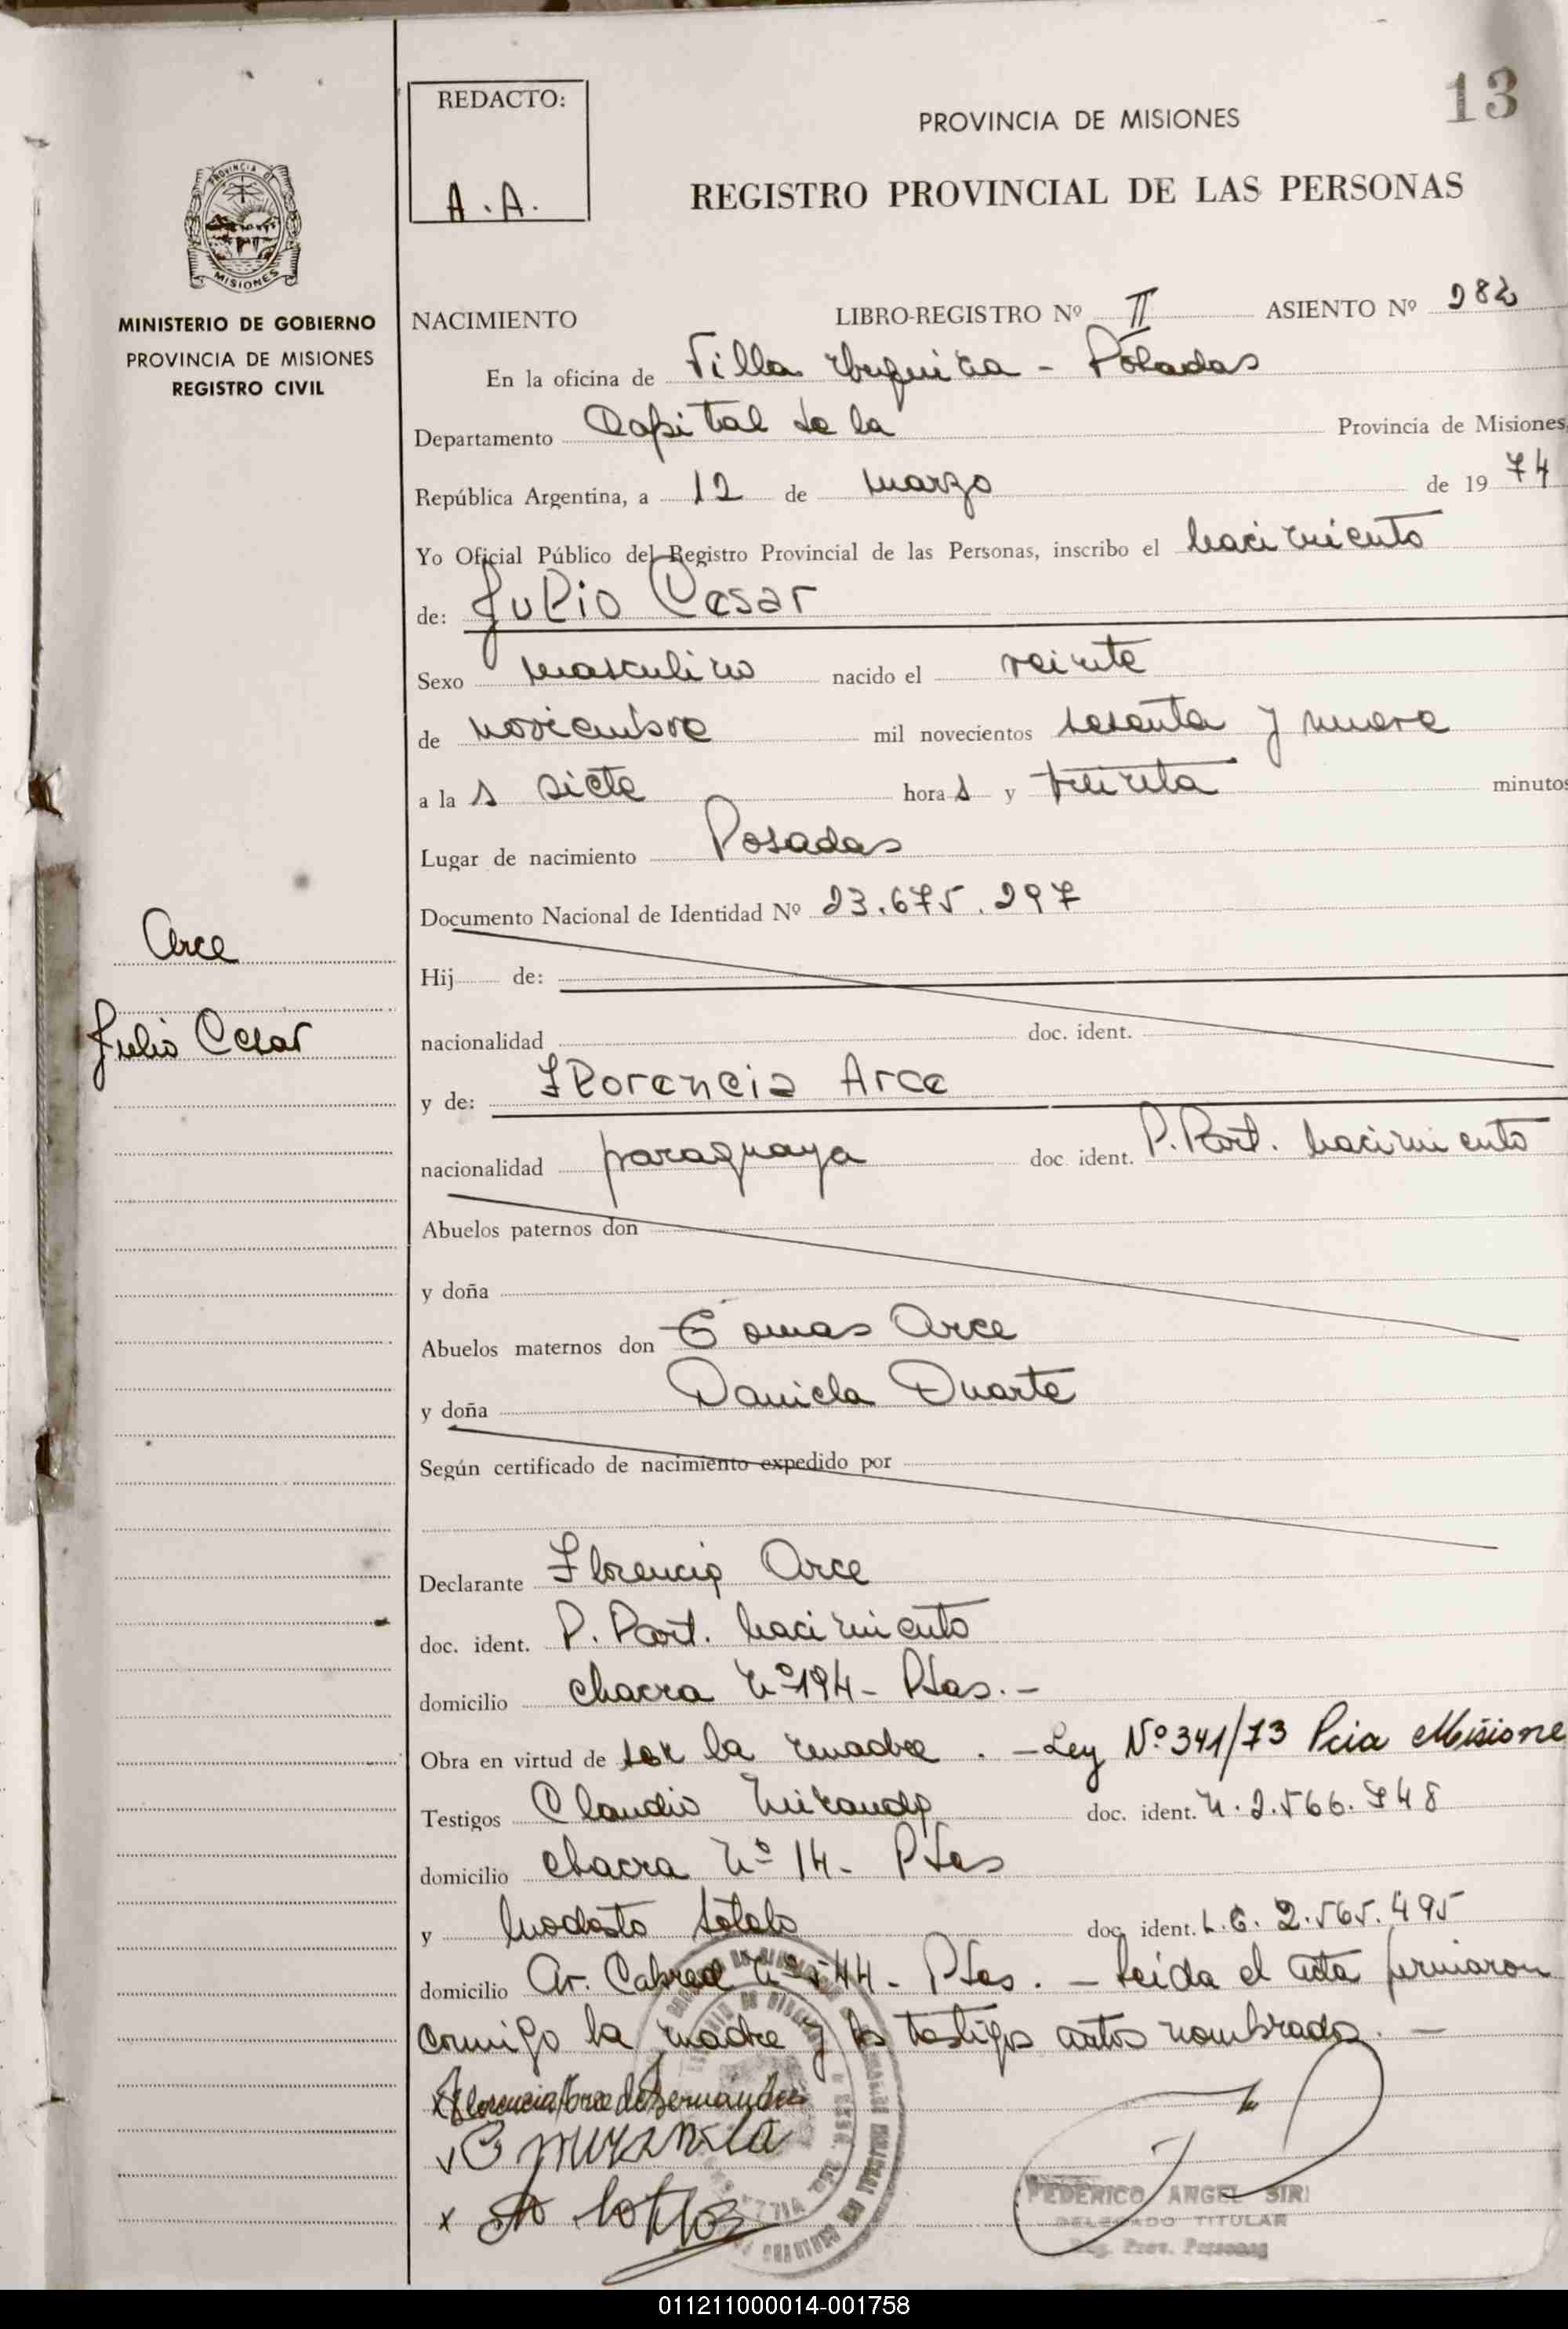 13
REDACTO:
A. A.
PROVINCIA DE MISIONES
REGISTRO PROVINCIAL DE LAS PERSONAS
PROVINCIA DE
MISIONES
MINISTERIO DE GOBIERNO
PROVINCIA DE MISIONES
REGISTRO CIVIL
NACIMIENTO LIBRO-REGISTRO Nº II ASIENTO Nº 982
En la oficina de Villa Urquiza - Posadas
Departamento Capital de la Provincia de Misiones,
República Argentina, a 12 de marzo de 1974
Yo Oficial Público del Registro Provincial de las Personas, inscribo el nacimiento
de: Julio Cesar
Sexo masculino nacido el veinte
de noviembre mil novecientos sesenta y nueve
a la s siete hora s y treinta minutos
Lugar de nacimiento Posadas
Documento Nacional de Identidad Nº 23.675.297
Arce
Hij de:
Julio Cesar
nacionalidad doc. ident.
y de: Florencia Arce
nacionalidad paraguaya doc ident. P. Part. nacimiento
Abuelos paternos don
y doña
Abuelos maternos don Tomas Arce
y doña Daniela Duarte
Según certificado de nacimiento expedido por
Declarante Florencia Arce
doc. ident. P. Part. nacimiento
domicilio chacra Nº 194 - Pdas. -
Obra en virtud de ser la madre. - Ley Nº 341/73 Pcia Misione
Testigos Claudio Miranda doc. ident. 2.566.948
domicilio chacra Nº 14 - Pdas
y Modesto Sotelo doc. ident. 2.565.495
domicilio Av. Cabred Nº 544 - Pdas. - Leida el acta firmaron
conmigo la madre y los testigos antes nombrados. -
x Florencia Arce de Fernández
C Miranda
x
FEDERICO ANGEL SIRI
DELEGADO TITULAR
Reg. Prov. Personas
011211000014-001758